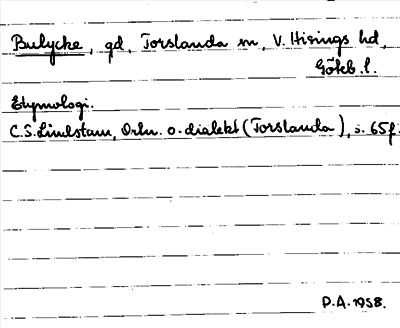 Bulycke, gd, Torslanda sn, V. Hisings hd,
Göteb. l.
Etymologi.
C.S. Lindstam, Ortn. o. dialekt (Torslanda), s. 65f.
D.A. 1958.